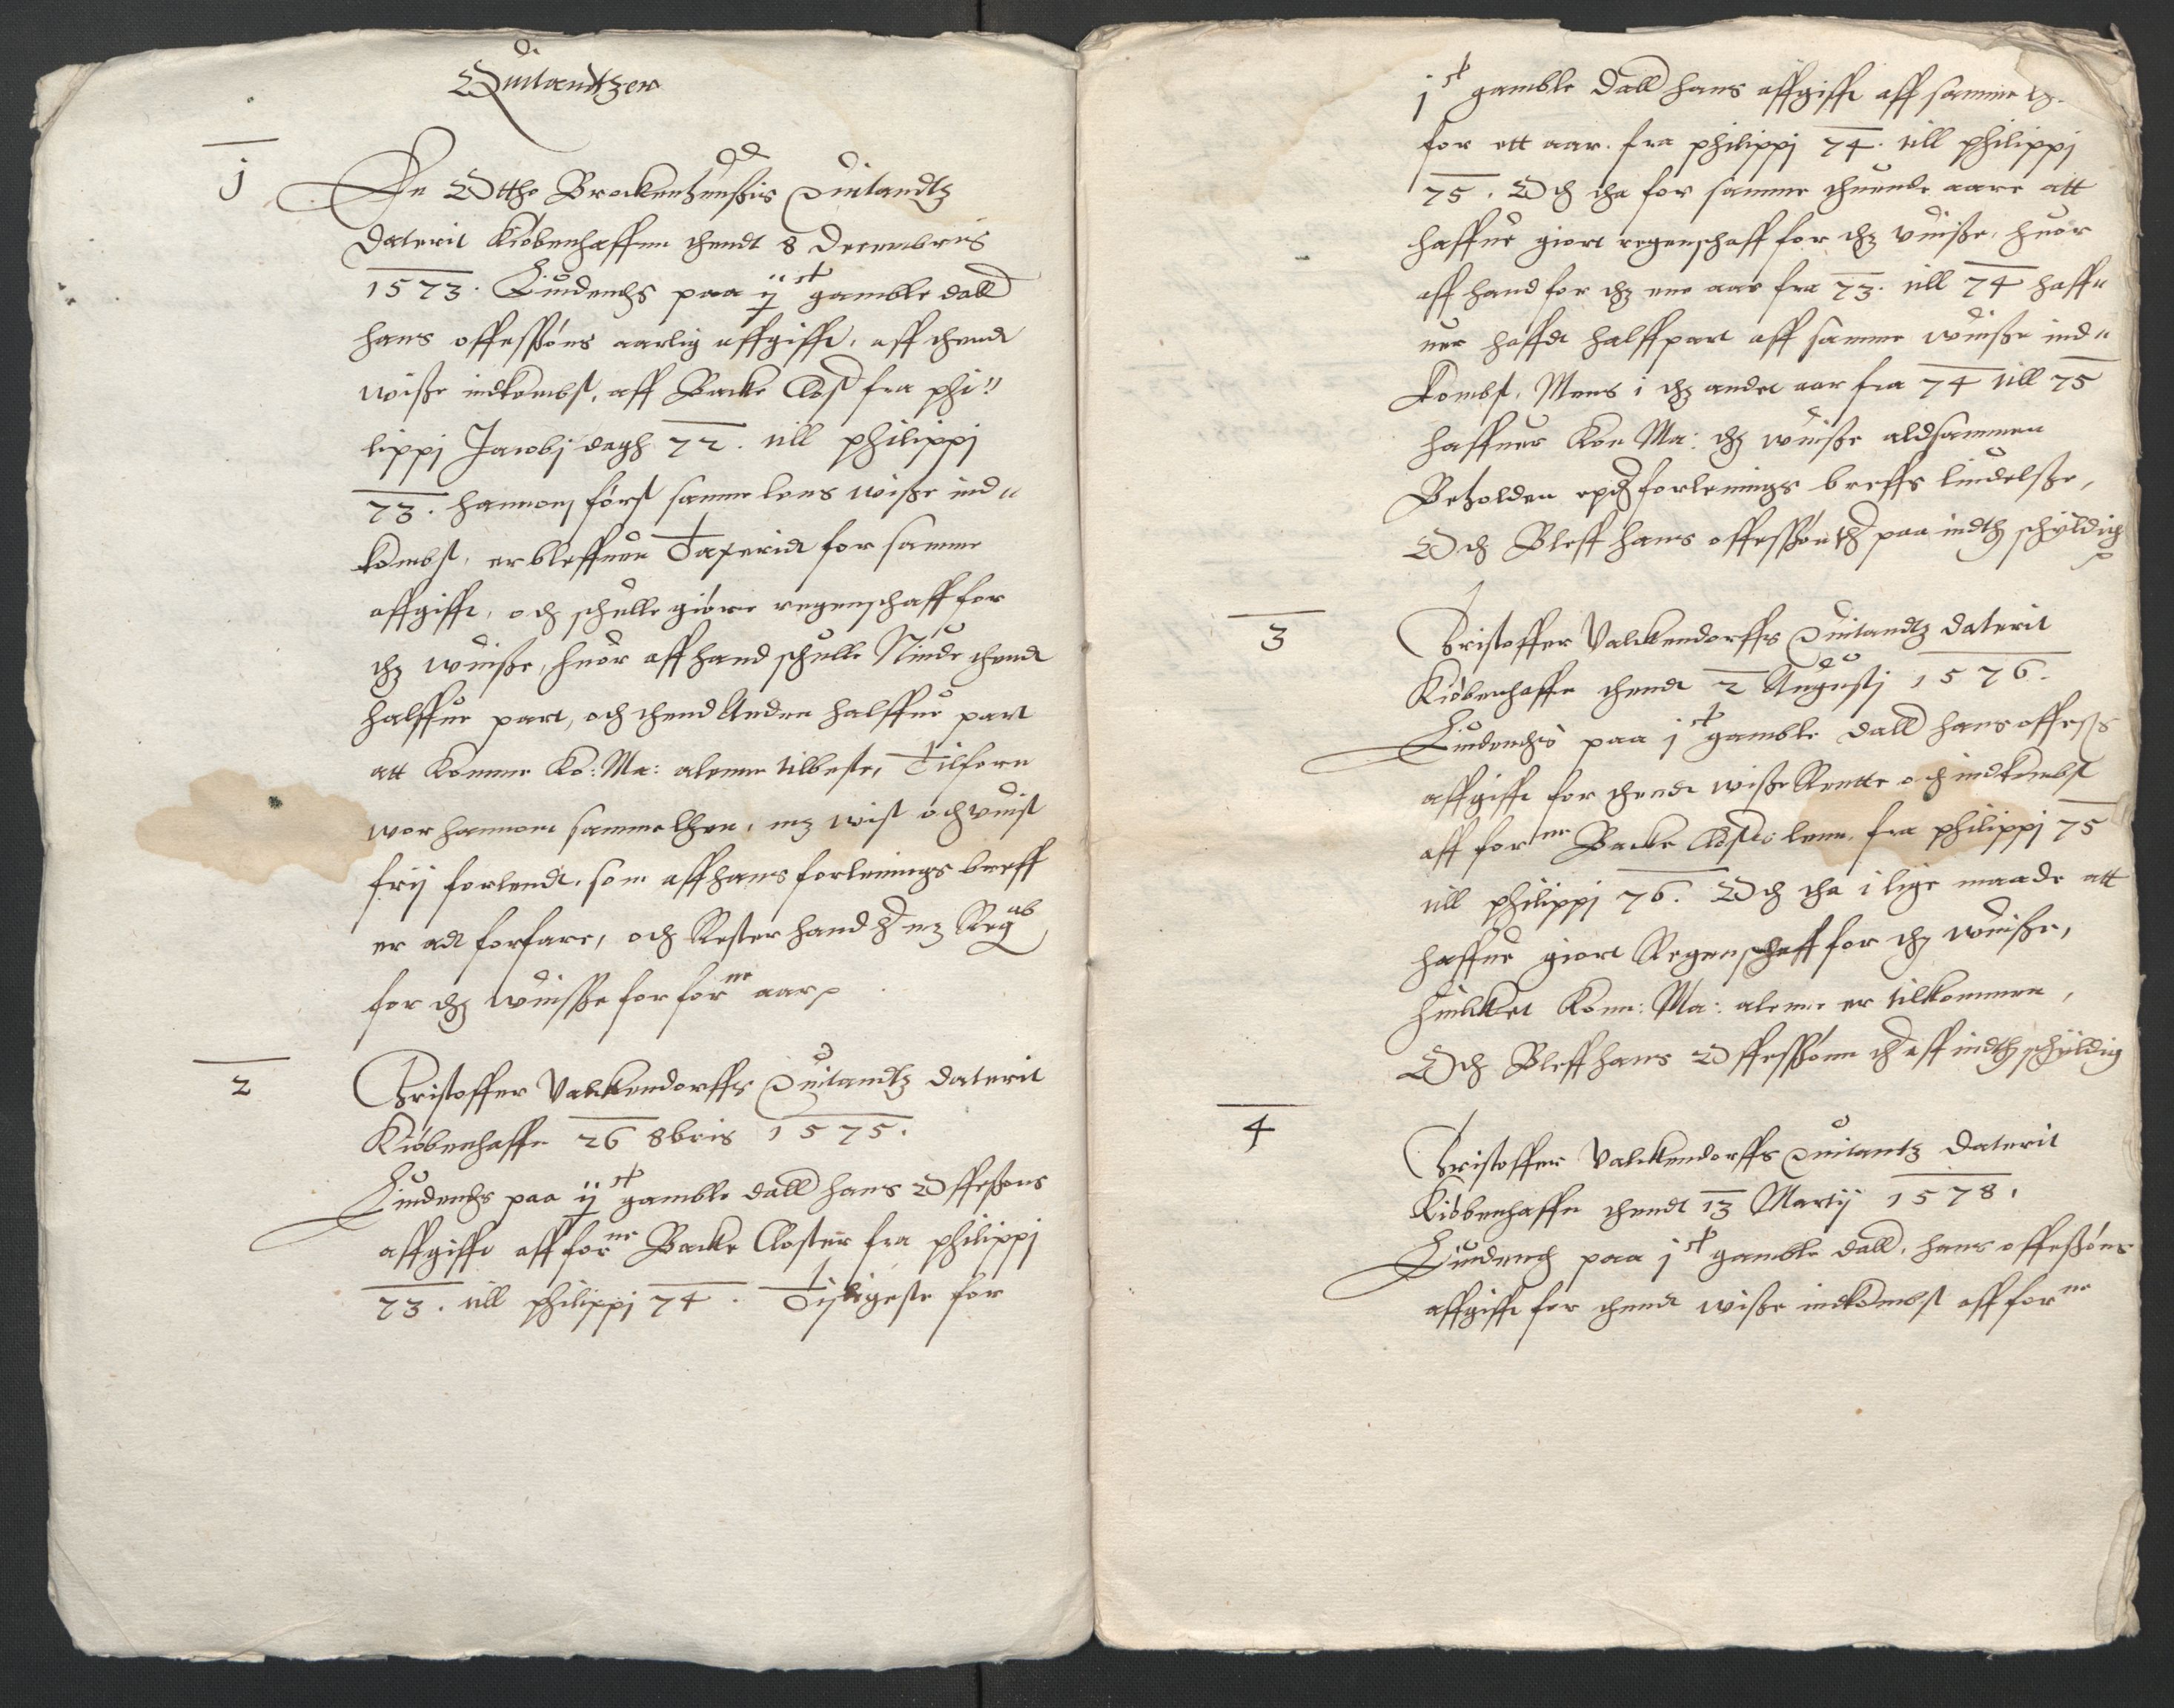 Quitantzer
j
En Ottho Brockenhuußis Quitandtz
Daterit Kiøbenhaffnn thendt 8 Decembris
1573. Liudendhs paa ij c gamble dall
hans offerßøns aarlig affgifft, aff thend
wiße indkombst, aff Backe Clost fra phi"
lippj Jacobj dagh 72. till philippj
73. hannom først samme lens wiße ind"
kombst, er bleffuen Taxerid for samme
affgifft, och schulle giøre regenschaff for
thz wuiße, huor aff hand schulle Niude thend
halffue part, och thend Anden halffue part
att komme Ko: Ma: alenne tilbeste, Tilforn
wor hannom samme lhen, mz wist och vuist
frij forlendt, som aff hans forlenings breff
er att forfare, och Rester hand mz Regab
for thz wuisße for forne aar
2
Christoffer Valckendorffs Quitandtz daterit
Kiøbenhaffn 26 8bris 1575.
Liudendhs paa ij c gamble dall hans Offerßøns
affgifft aff forne Backe Closter fra philippj
73. till philippj 74. Disligeste for
j c gamble dall hans affgifft aff samme
for ett aar. fra philippj 74. till philippj
75. Och tha for samme thuende aare att
haffue giort regenschaff for thz vuiße, huor
aff hand for thz ene aar fra 73. till 74 haff"
uer hafft halffpart aff samme wuiße ind"
kombst, Mens i thz andet aar fra 74 till 75
haffuer Kon Ma: thz wuiße aldsammen
Beholden epther forlenings breffs liudelße,
Och Bleff hans offerßøn paa indth schyldig
3
Christoffer Valckendorffs Quitandtz daterit
Kiøbenhaffn thendt 2 Augustj 1576.
Liudendhs paa j c gamble dall hans offerß
affgifft for thend wiße Rentte och indkombst
aff forne Backe Closter lenn, fra philippj 75
till philippj 76. Och tha i lige maade att
haffue giort Regenschaff for thz wuiße,
huilcket Konn: Ma: alenne er tilkommen,
Och Bleff hans Offerßønn aff indth schyldig
4
Christoffer Valckendorffs Quitantz Daterit
Kiøbenhaffn thendt 13 Martij 1578.
Liudendh paa j c gamble dall, hans offerßøns
affgifft for thend wiße indkombst aff forne